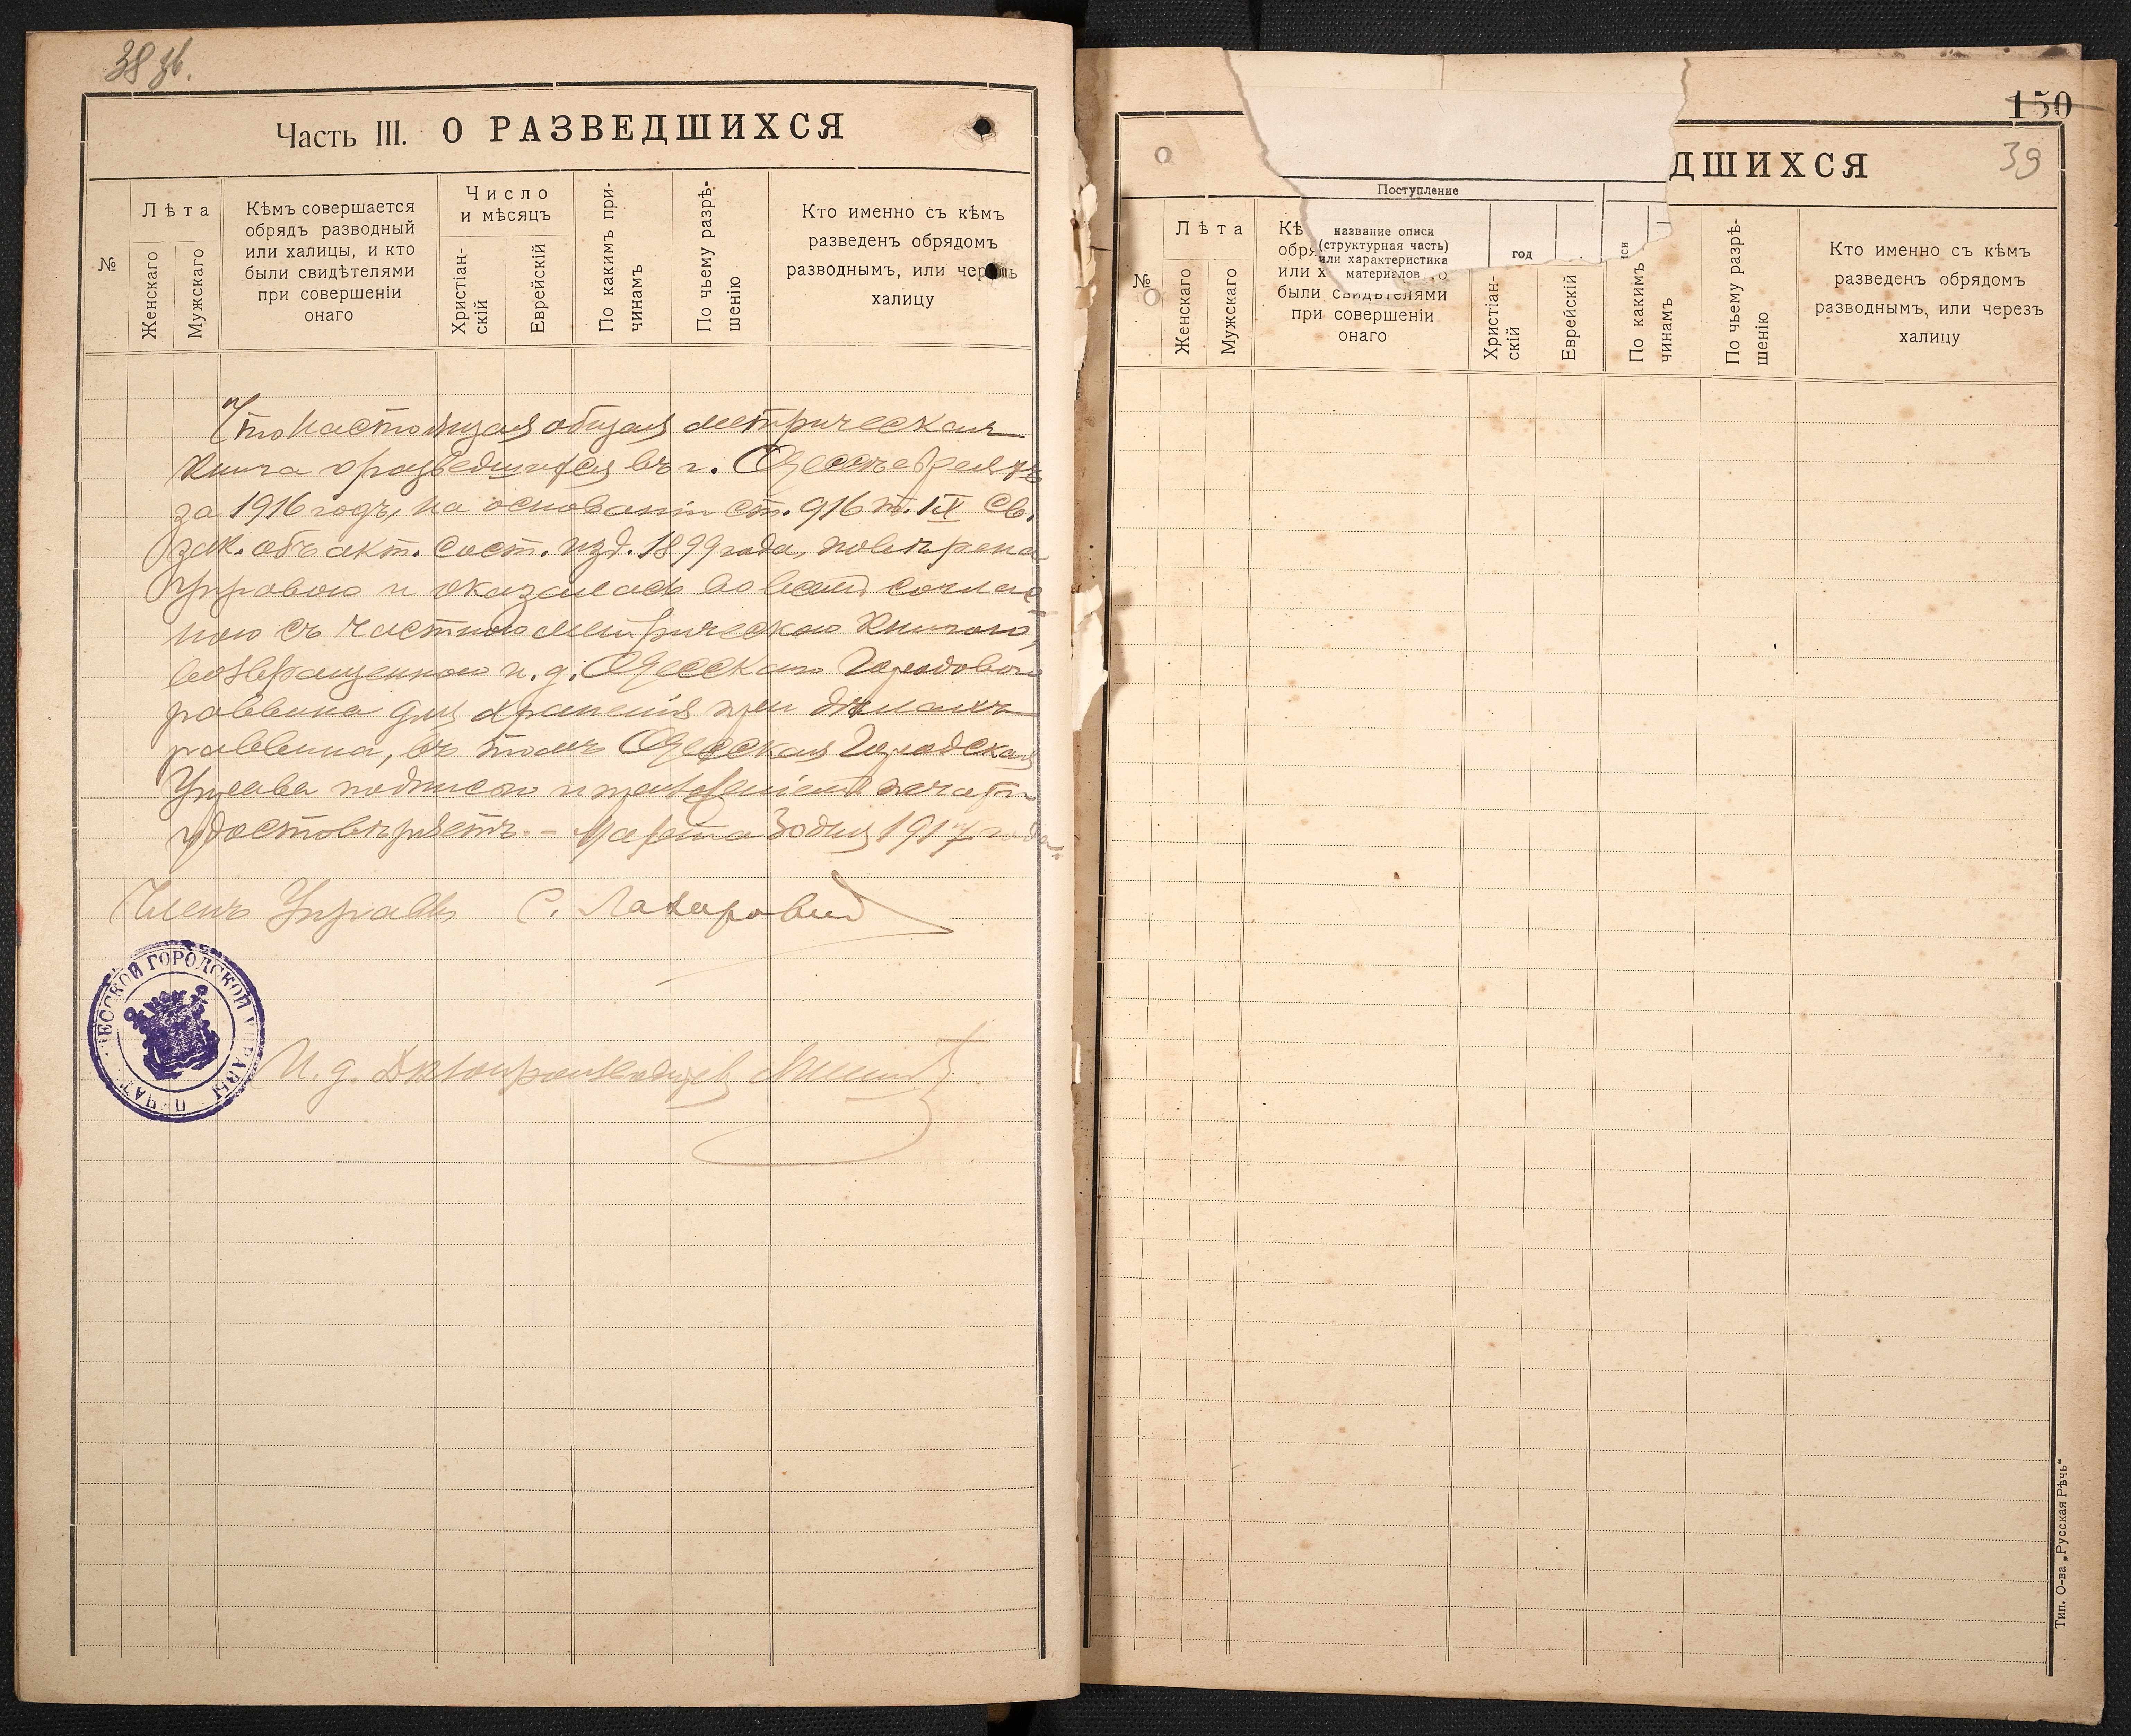 38 зв.
Часть III. О РАЗВЕДШИХСЯ
№
Лѣта
Женскаго
Мужскаго
Кѣмъ совершается
обрядъ разводный
или халицы, и кто
были свидѣтелями
при совершеніи
онаго
Число
и мѣсяцъ
Христіан-
скій
Еврейскій
По какимъ при-
чинамъ
По чьему разрѣ-
шенію
Кто именно съ кѣмъ
разведенъ обрядомъ
разводнымъ, или черезъ
халицу
Что настоящая общая метрическая
книга о разведшихся въ г. Одессѣ евреяхъ
за 1916 годъ, на основаніи ст. 916 т. IX Св.
зак. объ акт. сост. изд. 1899 года, повѣрена
Управою и оказалась во всемъ соглас-
ною съ частною метрическою книгою,
возвращенною и. д. Одесскаго Городового
раввина для храненія при дѣлахъ
раввина, въ томъ Одесская Городская
Управа подписью и приложеніемъ печати
удостовѣряетъ. - Марта 30 дня 1917 года.
Членъ Управы С.
ОДЕССКОЙ ГОРОДСКОЙ УПРАВЫ ПЕЧАТЬ
И. д. Дѣлопроизводителя
150
39
ДШИХСЯ
Поступление
название описи
(структурная часть)
или характеристика
материалов
год
№
Лѣта
Женскаго
Мужскаго
Кѣ
обря
или х
были свидѣтелями
при совершеніи
онаго
Христіан-
скій
Еврейскій
По какимъ
чинамъ
По чьему разрѣ-
шенію
Кто именно съ кѣмъ
разведенъ обрядомъ
разводнымъ, или черезъ
халицу
Тип. О-ва „Русская Рѣчь“